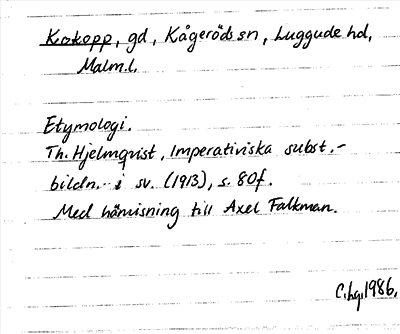 Kokopp, gd, Kågeröds sn, Luggude hd,
Malm.l.
Etymologi.
Th. Hjelmqvist, Imperativiska subst.-
bildn. i sv. (1913), s. 80f.
Med hänvisning till Axel Falkman.
1986.